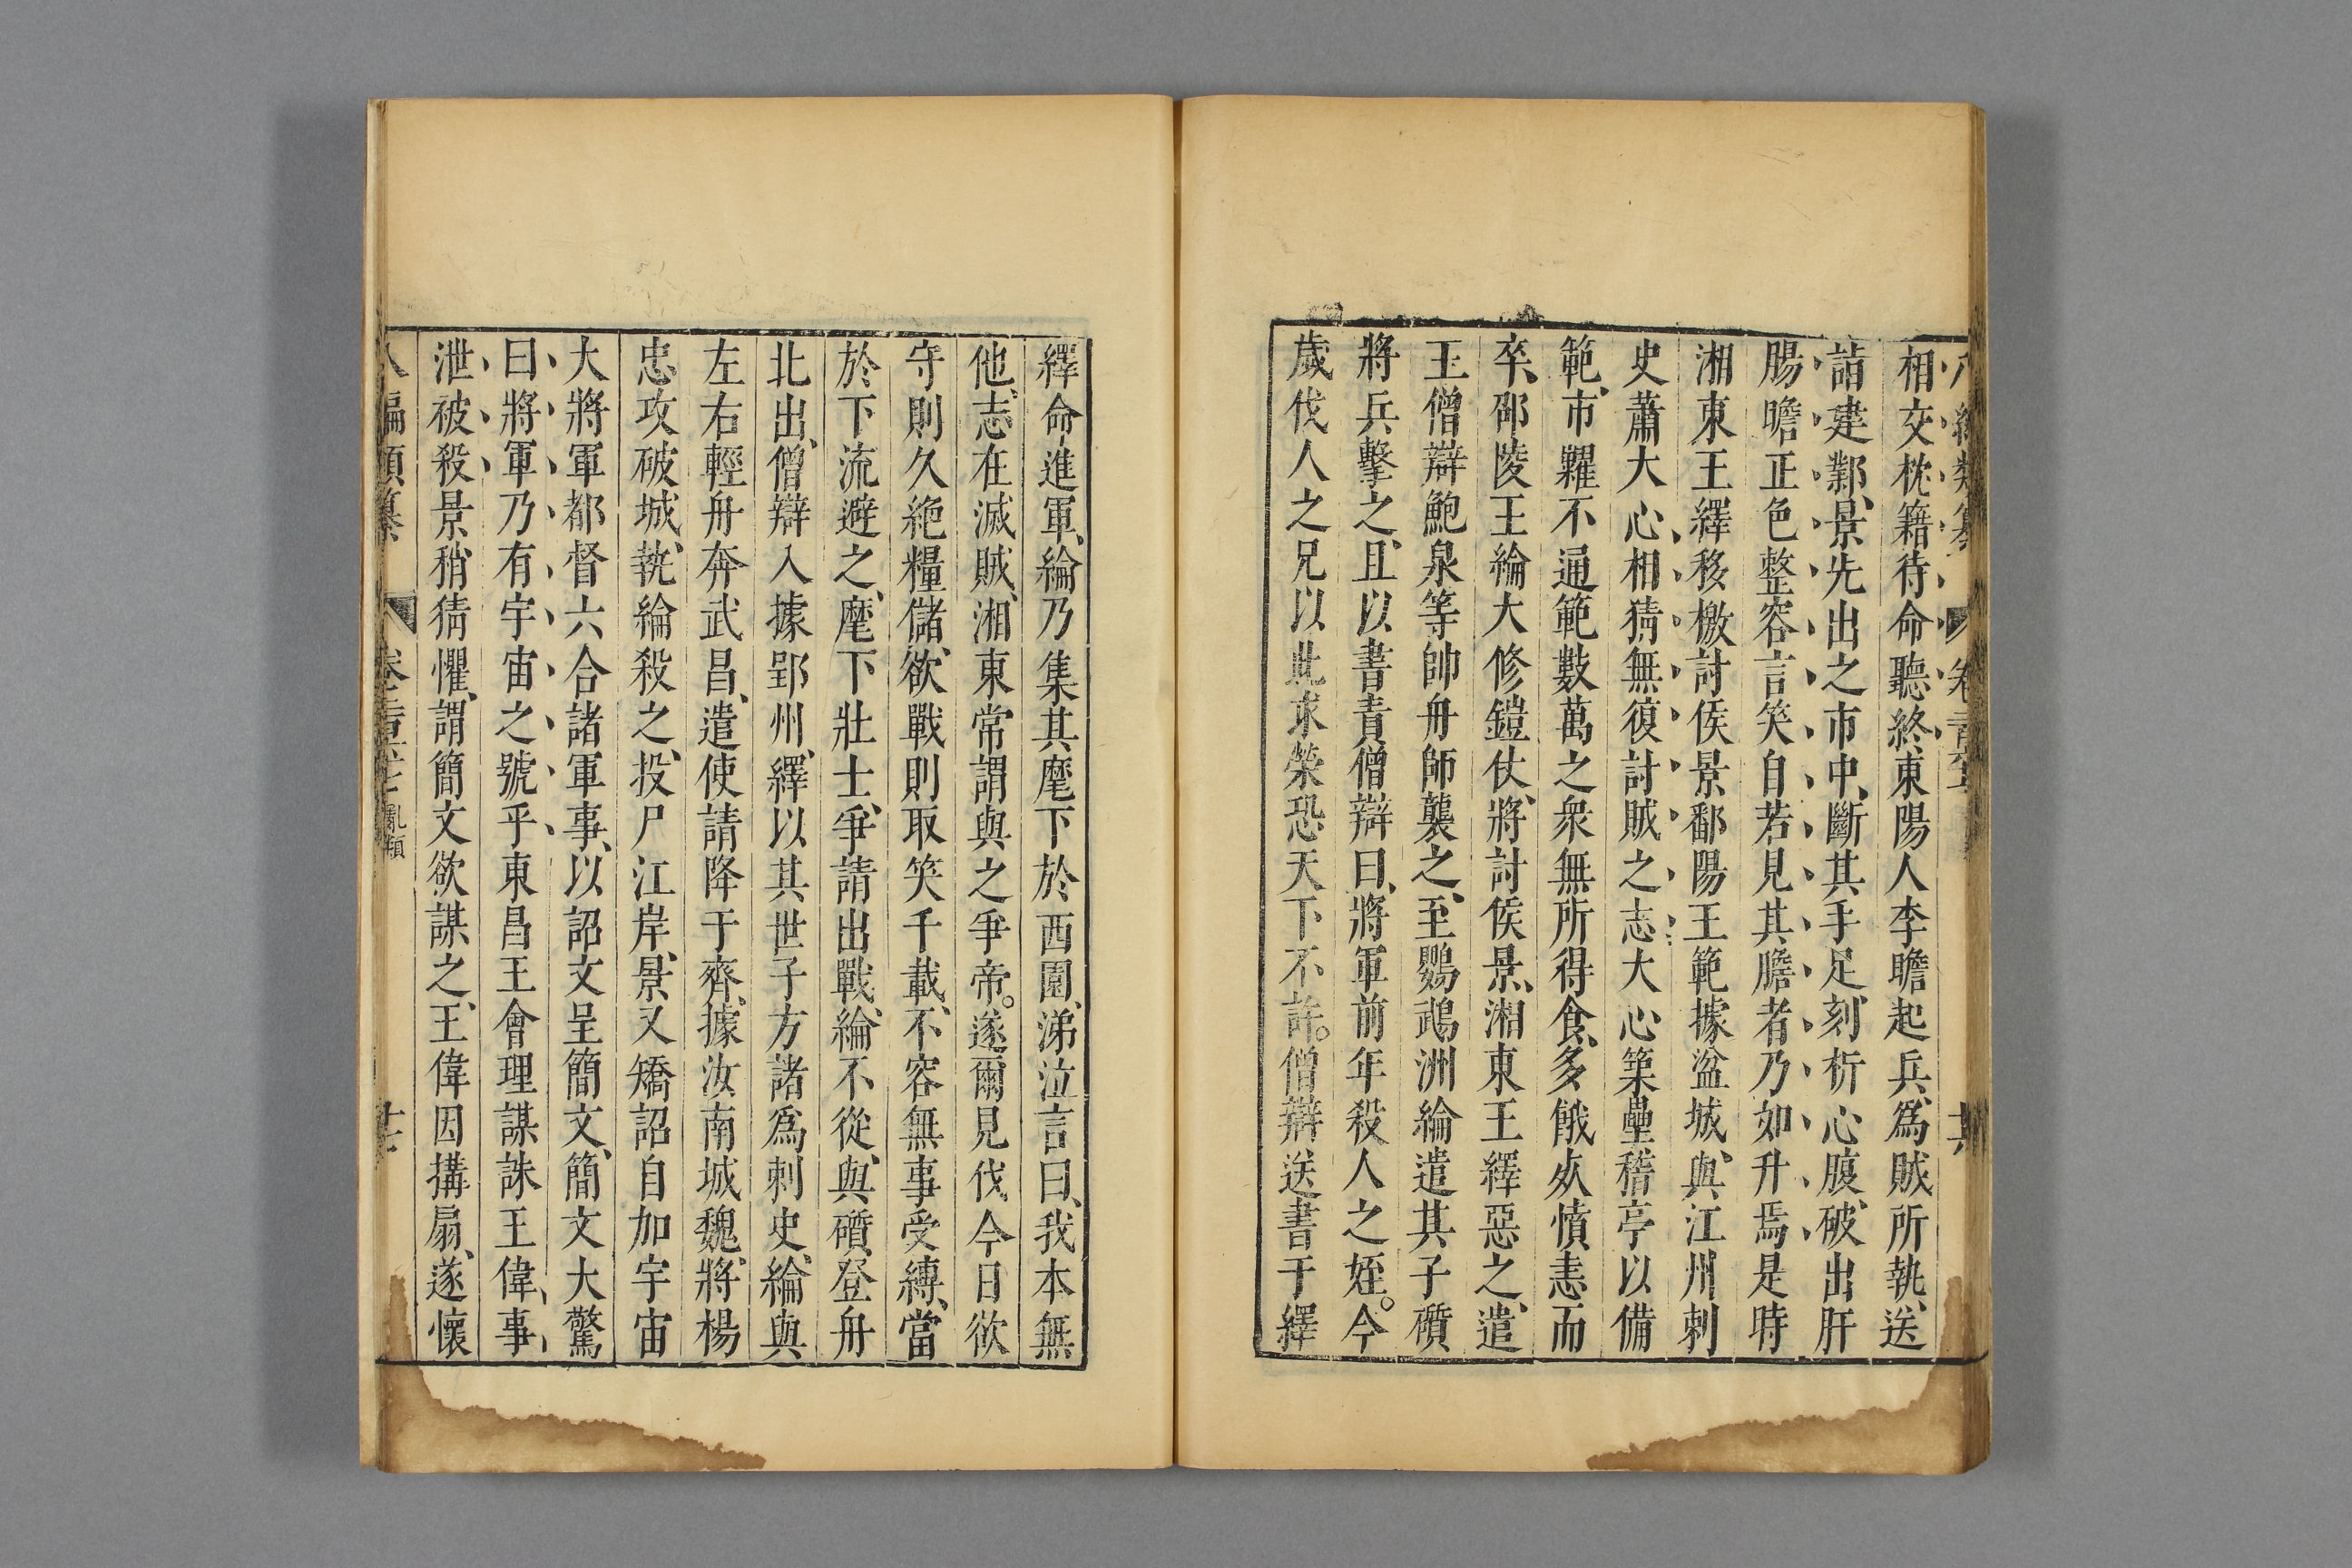 相交枕籍待命聽終東陽人李瞻起兵、爲賊所執、送
詣建鄴、景先出之市中、斷其手足、刻析心腹、破出肝
腸、瞻正色整容、言笑自若、見其膽者乃如升焉、是時
湘東王繹移檄討侯景、鄱陽王範據湓城、與江州刺
史蕭大心相猜、無復討賊之志、大心築壘稽亭以備
範、市糴不通、範數萬之衆無所得食、多餓死、憤恚而
卒、邵陵王綸大修鎧仗、將討侯景、湘東王繹惡之、遣
王僧辯鮑泉等帥舟師襲之、至鸚鵡洲、綸遣其子礩
將兵擊之、且以書責僧辯曰、將軍前年殺人之姪。今
歲伐人之兄、以此求榮、恐天下不許。僧辯送書于繹
繹命進軍、綸乃集其麾下於西園、涕泣言曰、我本無
他、志在滅賊、湘東常謂與之爭帝。遂爾見伐、今日欲
守則久絶糧儲、欲戰則取笑千載、不容無事受縛、當
於下流避之、麾下壯士、爭請出戰、綸不從、與礩登舟
北出、僧辯入據郢州、繹以其世子方諸爲刺史、綸與
左右輕舟奔武昌、遣使請降于齊、據汝南城、魏將楊
忠攻破城、執綸殺之、投尸江岸、景又矯詔自加宇宙
大將軍都督六合諸軍事、以詔文呈簡文、簡文大驚
曰、將軍乃有宇宙之號乎、東昌王會理謀誅王偉、事
泄被殺、景稍猜懼、謂簡文欲謀之、王偉因搆扇、遂懷
編類纂 卷 亂類 十七